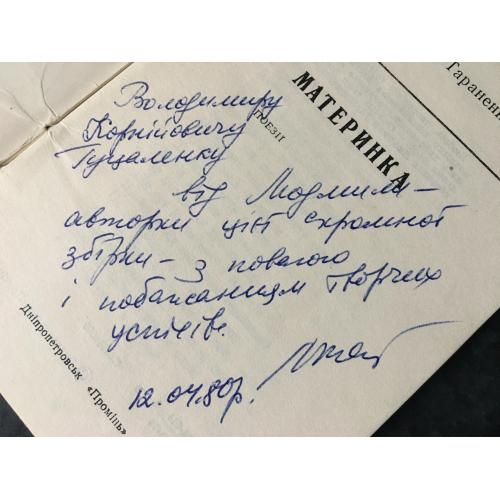 Таранен
МАТЕРИНКА
ПОЕЗІЇ
Володимиру
Корнійовичу
Гуцаленку
від Людмили –
авторки цієї скромної
збірки – з повагою
і побажанням творчих
успіхів.
12.04.80р.
Дніпропетровськ «Промінь»